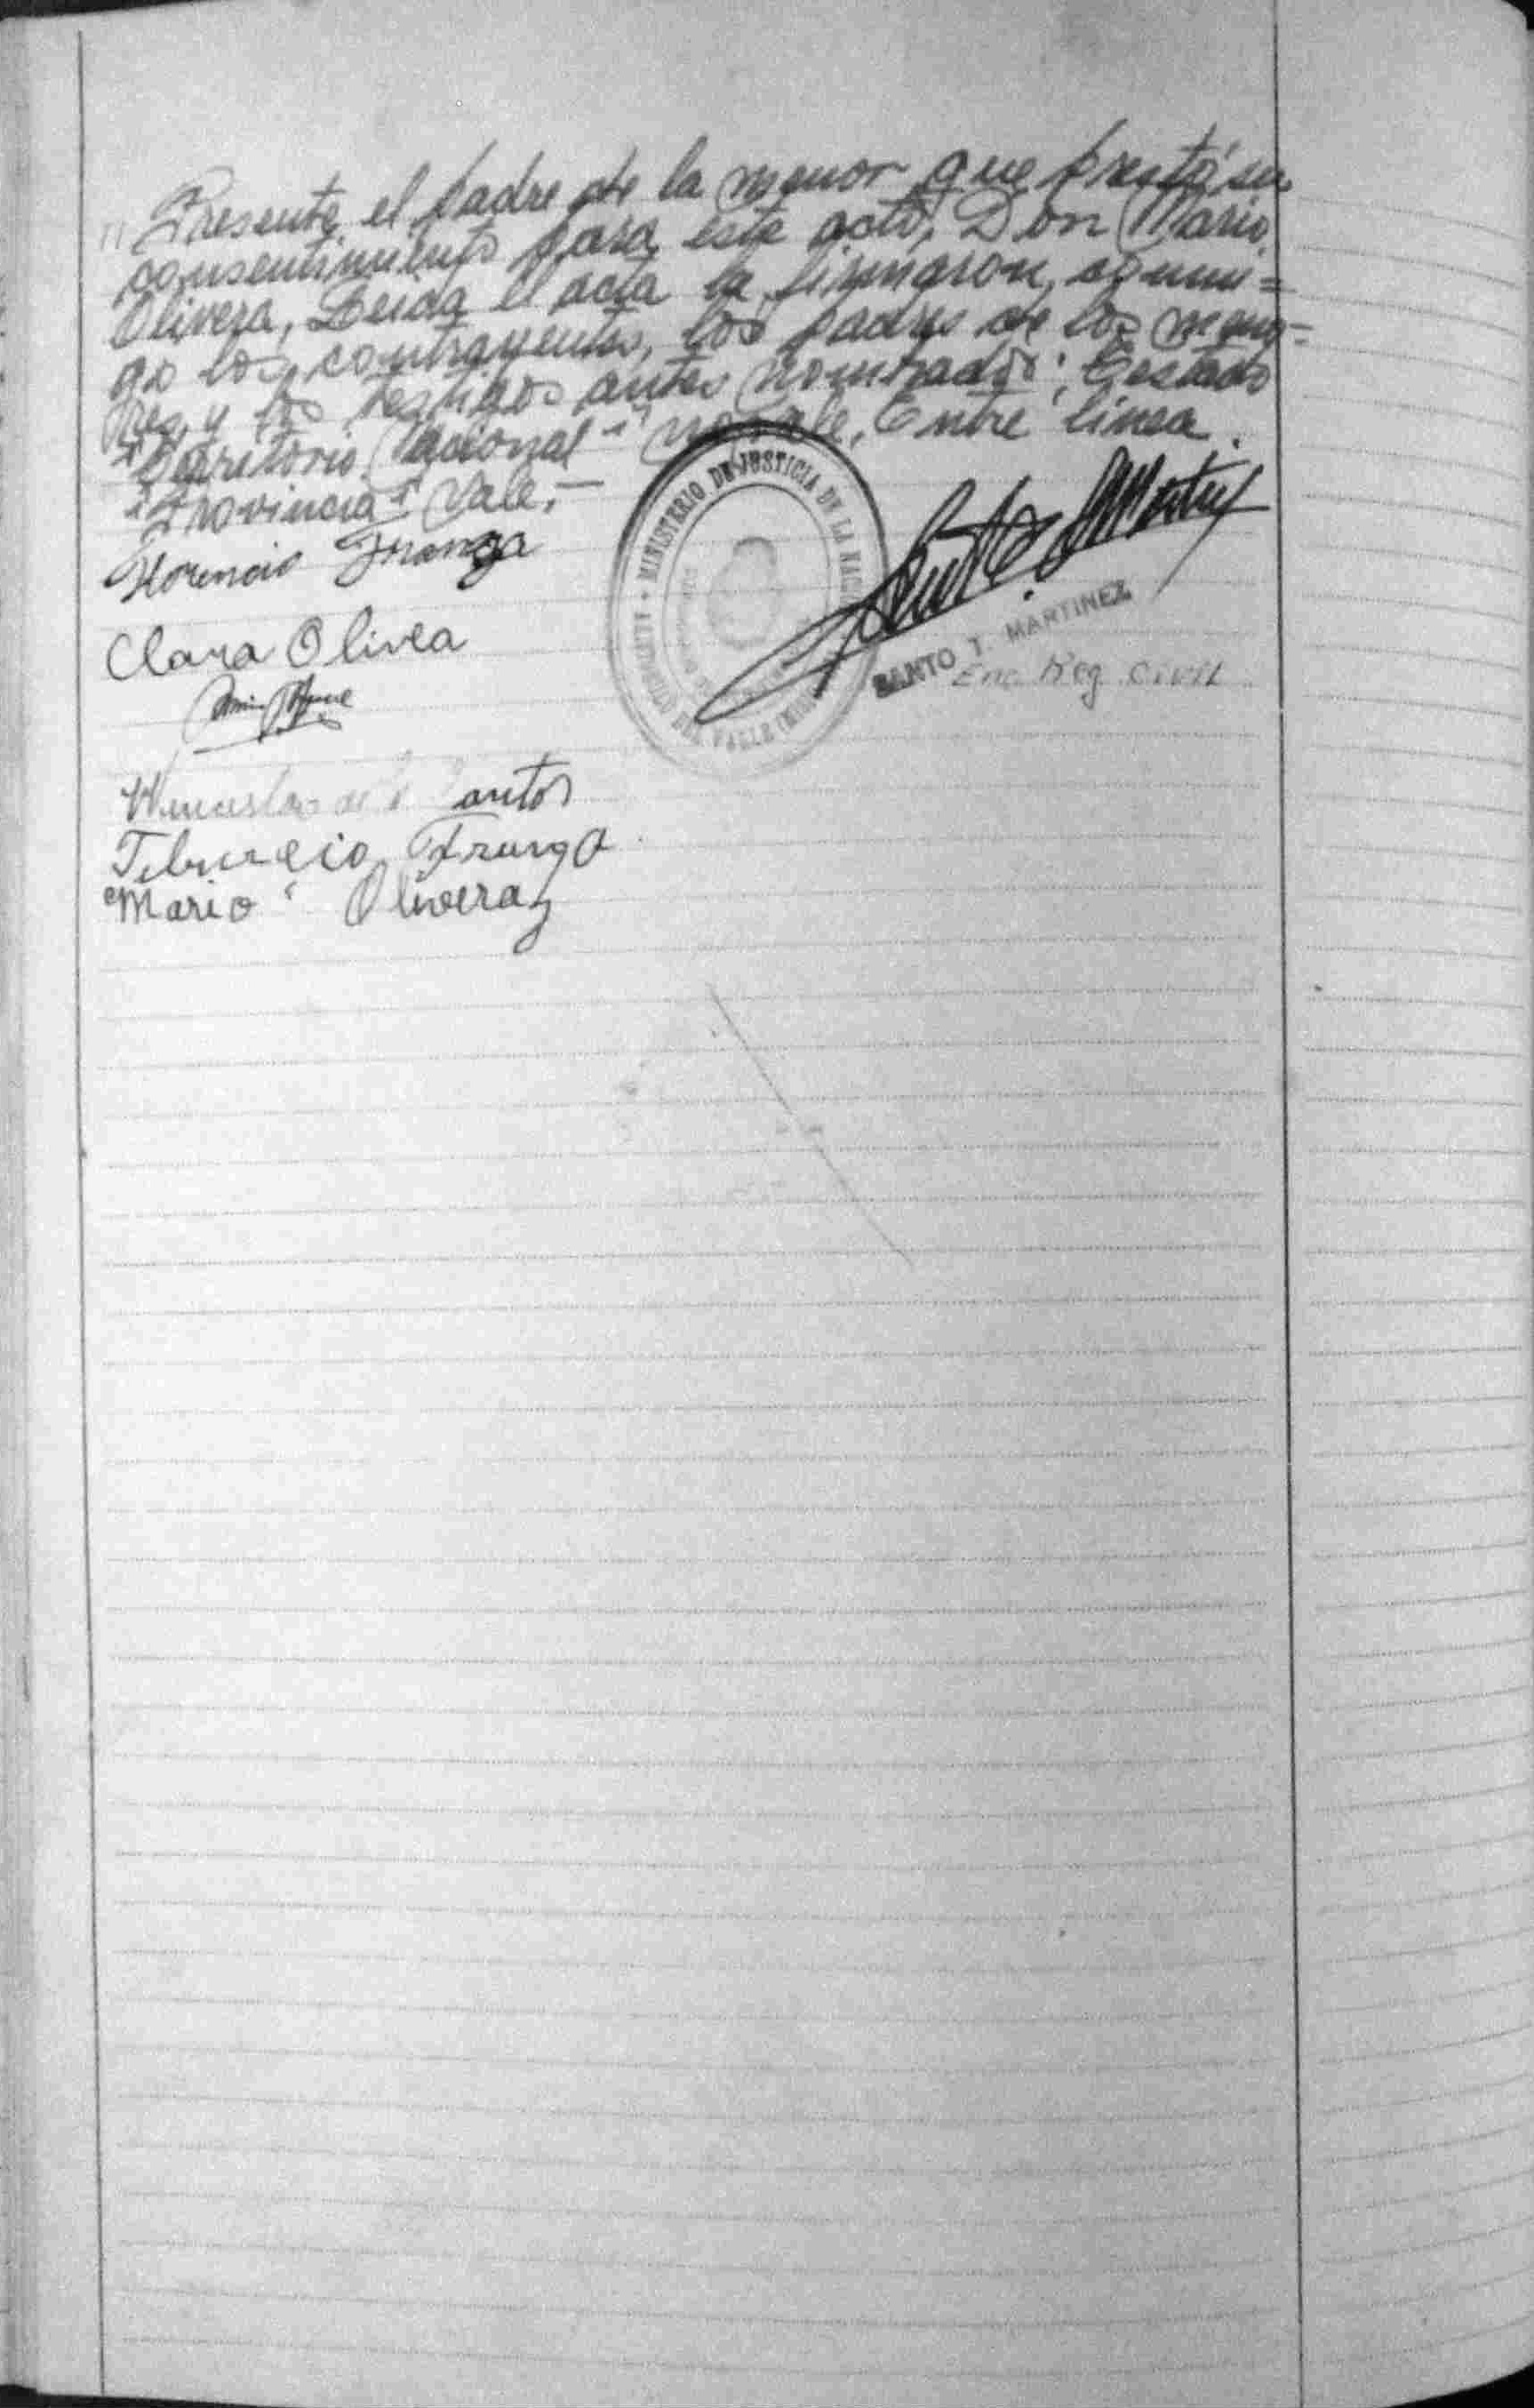 " Presente, el padre de la menor que prestó su
consentimiento para este acto, Don Mario
Olivera, Leida el acta la firmaron, conmi=
go los contrayentes, los padres de los meno=
res, y los testigos antes nombrados; Testado
"Territorio Nacional" no vale, Entre linea.
"Provincia" Vale.—
Florencio Franga
Clara Olivea
MINISTERIO DE JUSTICIA DE LA NACI
DEL VALLE
SANTO T. MARTINEZ
Enc Reg Civil
Wenceslao de antos
Tiburcio Franga
Mario Olivera